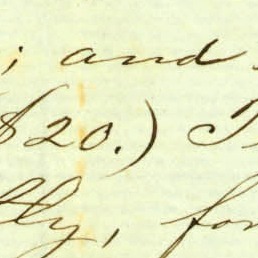 ; and
$20.)
tly, for